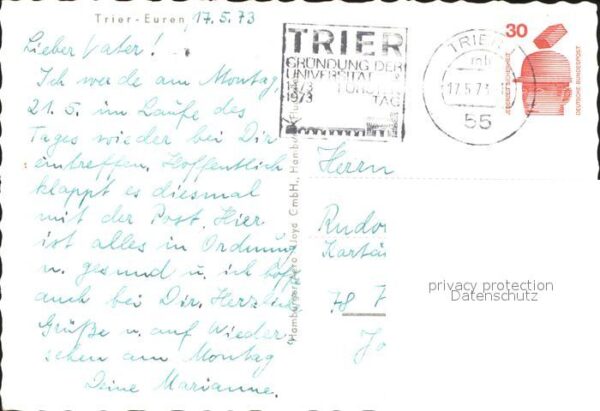 Trier-Euren, 17.5.73
Lieber Vater!
Ich werde am Montag,
21.5. im Laufe des
Tages wieder bei Dir
eintreffen. Hoffentlich
klappt es diesmal
mit der Post. Hier
ist alles in Ordnung
u. gesund u. ich hoffe
auch bei Dir. Herzliche
Grüße u. auf Wieder
sehen am Montag
Deine Marianne.
TRIER
GRÜNDUNG DER
UNIVERSITÄT
1473
1973
TAG
TRIER
17.5.73
55
30
JEDERZEIT SICHERHEIT
DEUTSCHE BUNDESPOST
Herrn
Rudo
Kartäu
78 F
Jo
privacy protection
Datenschutz
GmbH., Hamburg